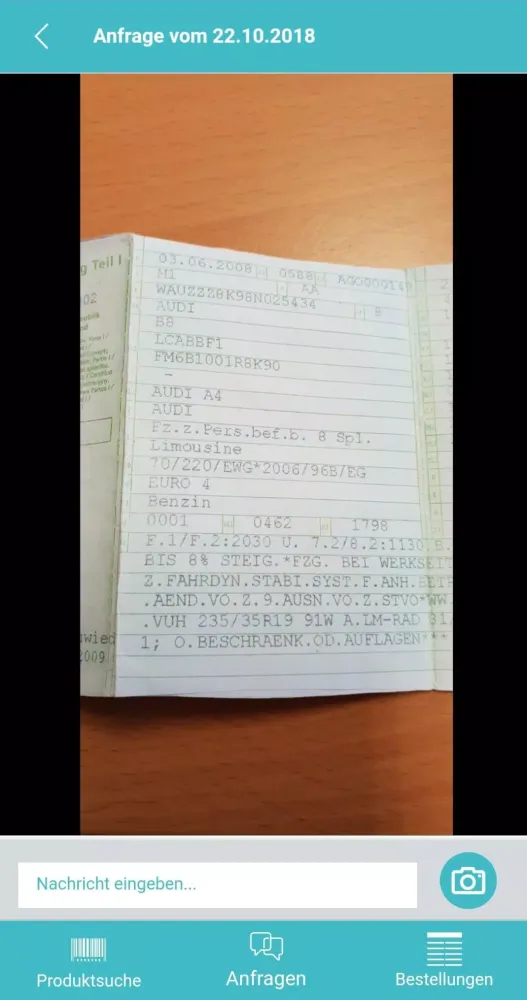 Anfrage vom 22.10.2018
g Teil I
03.06.2008 0588 AGO00014
M1 AA
WAUZZZ8K98N025434 8
AUDI
B8
LCABBF1
FM6B1001R8K90
-
AUDI A4
AUDI
Fz.z.Pers.bef.b. 8 Spl.
Limousine
70/220/EWG*2006/96B/EG
EURO 4
Benzin
0001 0462 1798
F.1/F.2:2030 U. 7.2/8.2:1130 B.
BIS 8% STEIG.*FZG. BEI WERKSEIT
Z.FAHRDYN.STABI.SYST.F.ANH.BETR
.AEND.VO.Z.9.AUSN.VO.Z.STVO*WW
.VUH 235/35R19 91W A.LM-RAD
1; O.BESCHRAENK.OD.AUFLAGEN***
2009
Nachricht eingeben...
Produktsuche
Anfragen
Bestellungen